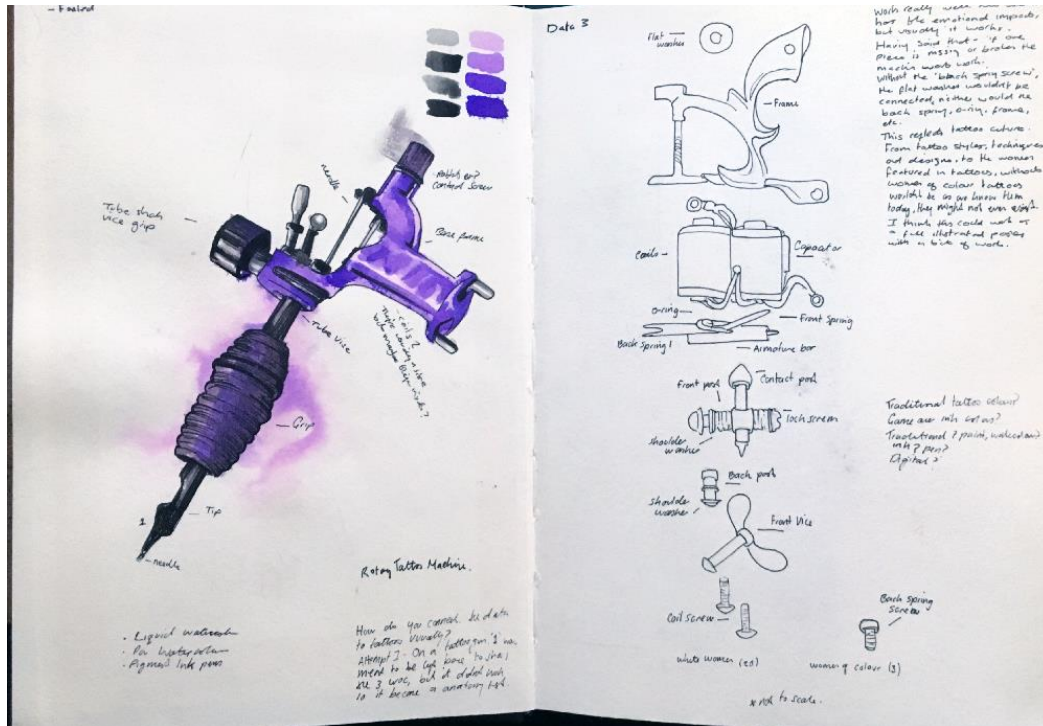 - Failed
needle
contact screw
Base frame
Tube
vice grip
Tube vice
- coils ?
Grip
Tip
1
needle
Rotary Tattoo Machine.
How do you connect the data
to tattoos visually?
Attempt 1 - On a tattoo gun '1' was
ment to be
3 woc, but it didnt work
so it became a anatomy
. Liquid
. Pan Watercolour
. Pigment Ink pens
Data 3
flat
washer
Frame
Coils
Capacitor
O-ring
Front spring
Back spring
Armature bar
Front post
Contact post
Lock screw
shoulder
washer
Back post
shoulder
washer
Front Vice
Coil screw
white women (23)
Back spring
screw
women of colour (3)
* not to scale.
work really well
has the emotional impact,
but visually it works.
Having said that - if one
piece is missing or broken the
machine wont work.
without the 'back spring screw',
the flat washer wouldn't be
connected, neither would the
back spring, o-ring, frame,
etc.
This reflects tattoo culture.
From tattoo styles, techniques
and designs, to the women
featured in tattoos, without
women of colour tattoos
wouldnt be as we know them
today, they might not even exist.
I think this could work as
a full illustrated poster
with a bit of work.
Traditional tattoo colour?
Same are ink colours?
Traditional? paint, watercolour?
ink? pen?
Digital?